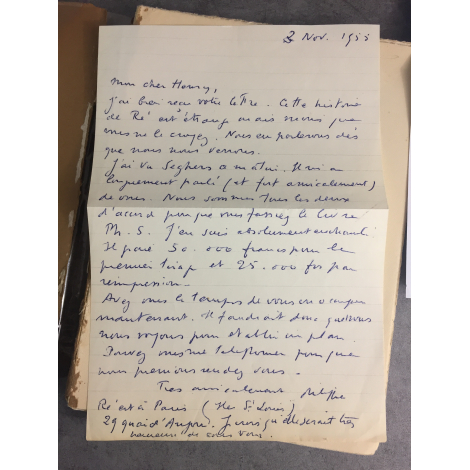 3 Nov. 1955
Mon cher Henry,
j'ai bien reçu votre lettre. Cette histoire
de Ré est étrange mais moins que
vous ne le croyez. Nous en parlerons dès
que nous nous verrons.
J'ai vu Seghers ce matin. Il m'a
longuement parlé (et fort amicalement)
de vous. Nous sommes tous les deux
d'accord pour que vous fassiez le livre
Ph. S. J'en suis absolument enchanté.
Il paie 50.000 francs pour le
premier tirage et 25.000 frs par
réimpression.
Avez vous le temps de vous en occuper
maintenant. Il faudrait donc que nous
nous voyons pour établir un plan.
Pouvez vous me téléphoner pour que
nous prenions rendez vous.
Très amicalement
Ré est à Paris (Ile St Louis)
29 quai d'Anjou. Je crois qu'elle serait très
heureuse de vous voir.